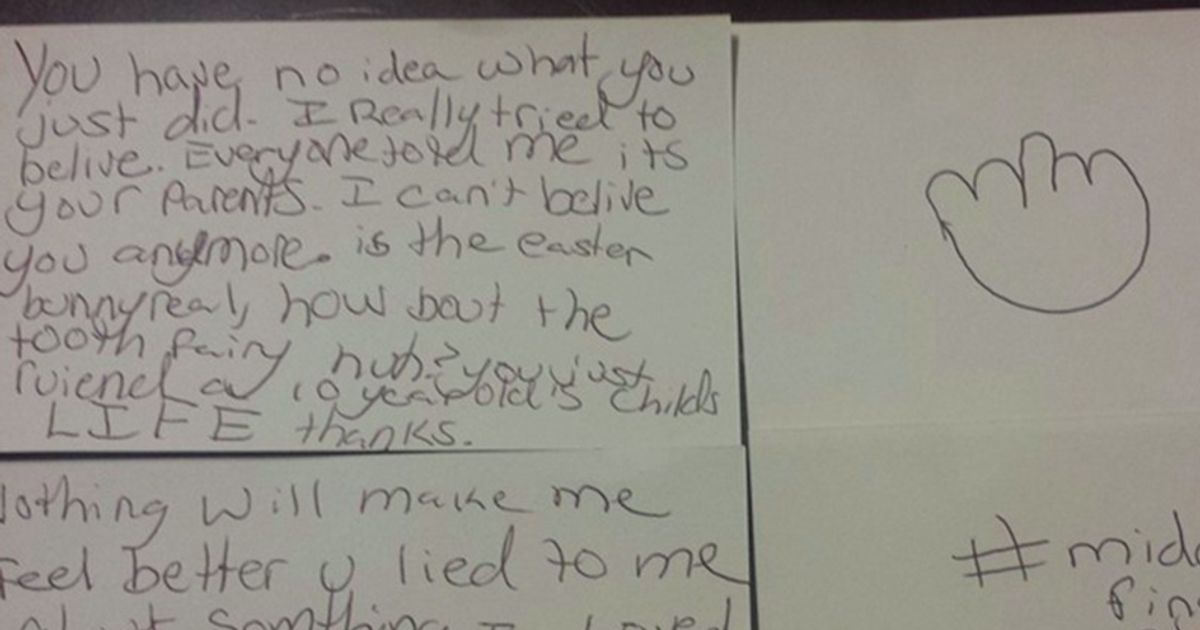 You have no idea what you
just did. I Really tried to
belive. Everyone told me its
your Parents. I can't belive
you anymore. is the easter
bunny real, how bout the
tooth fairy huh? you just
ruiend a 10 year old's childs
LIFE thanks.
Nothing will make me
feel better u lied to me
somthing I loved
#midd
fing